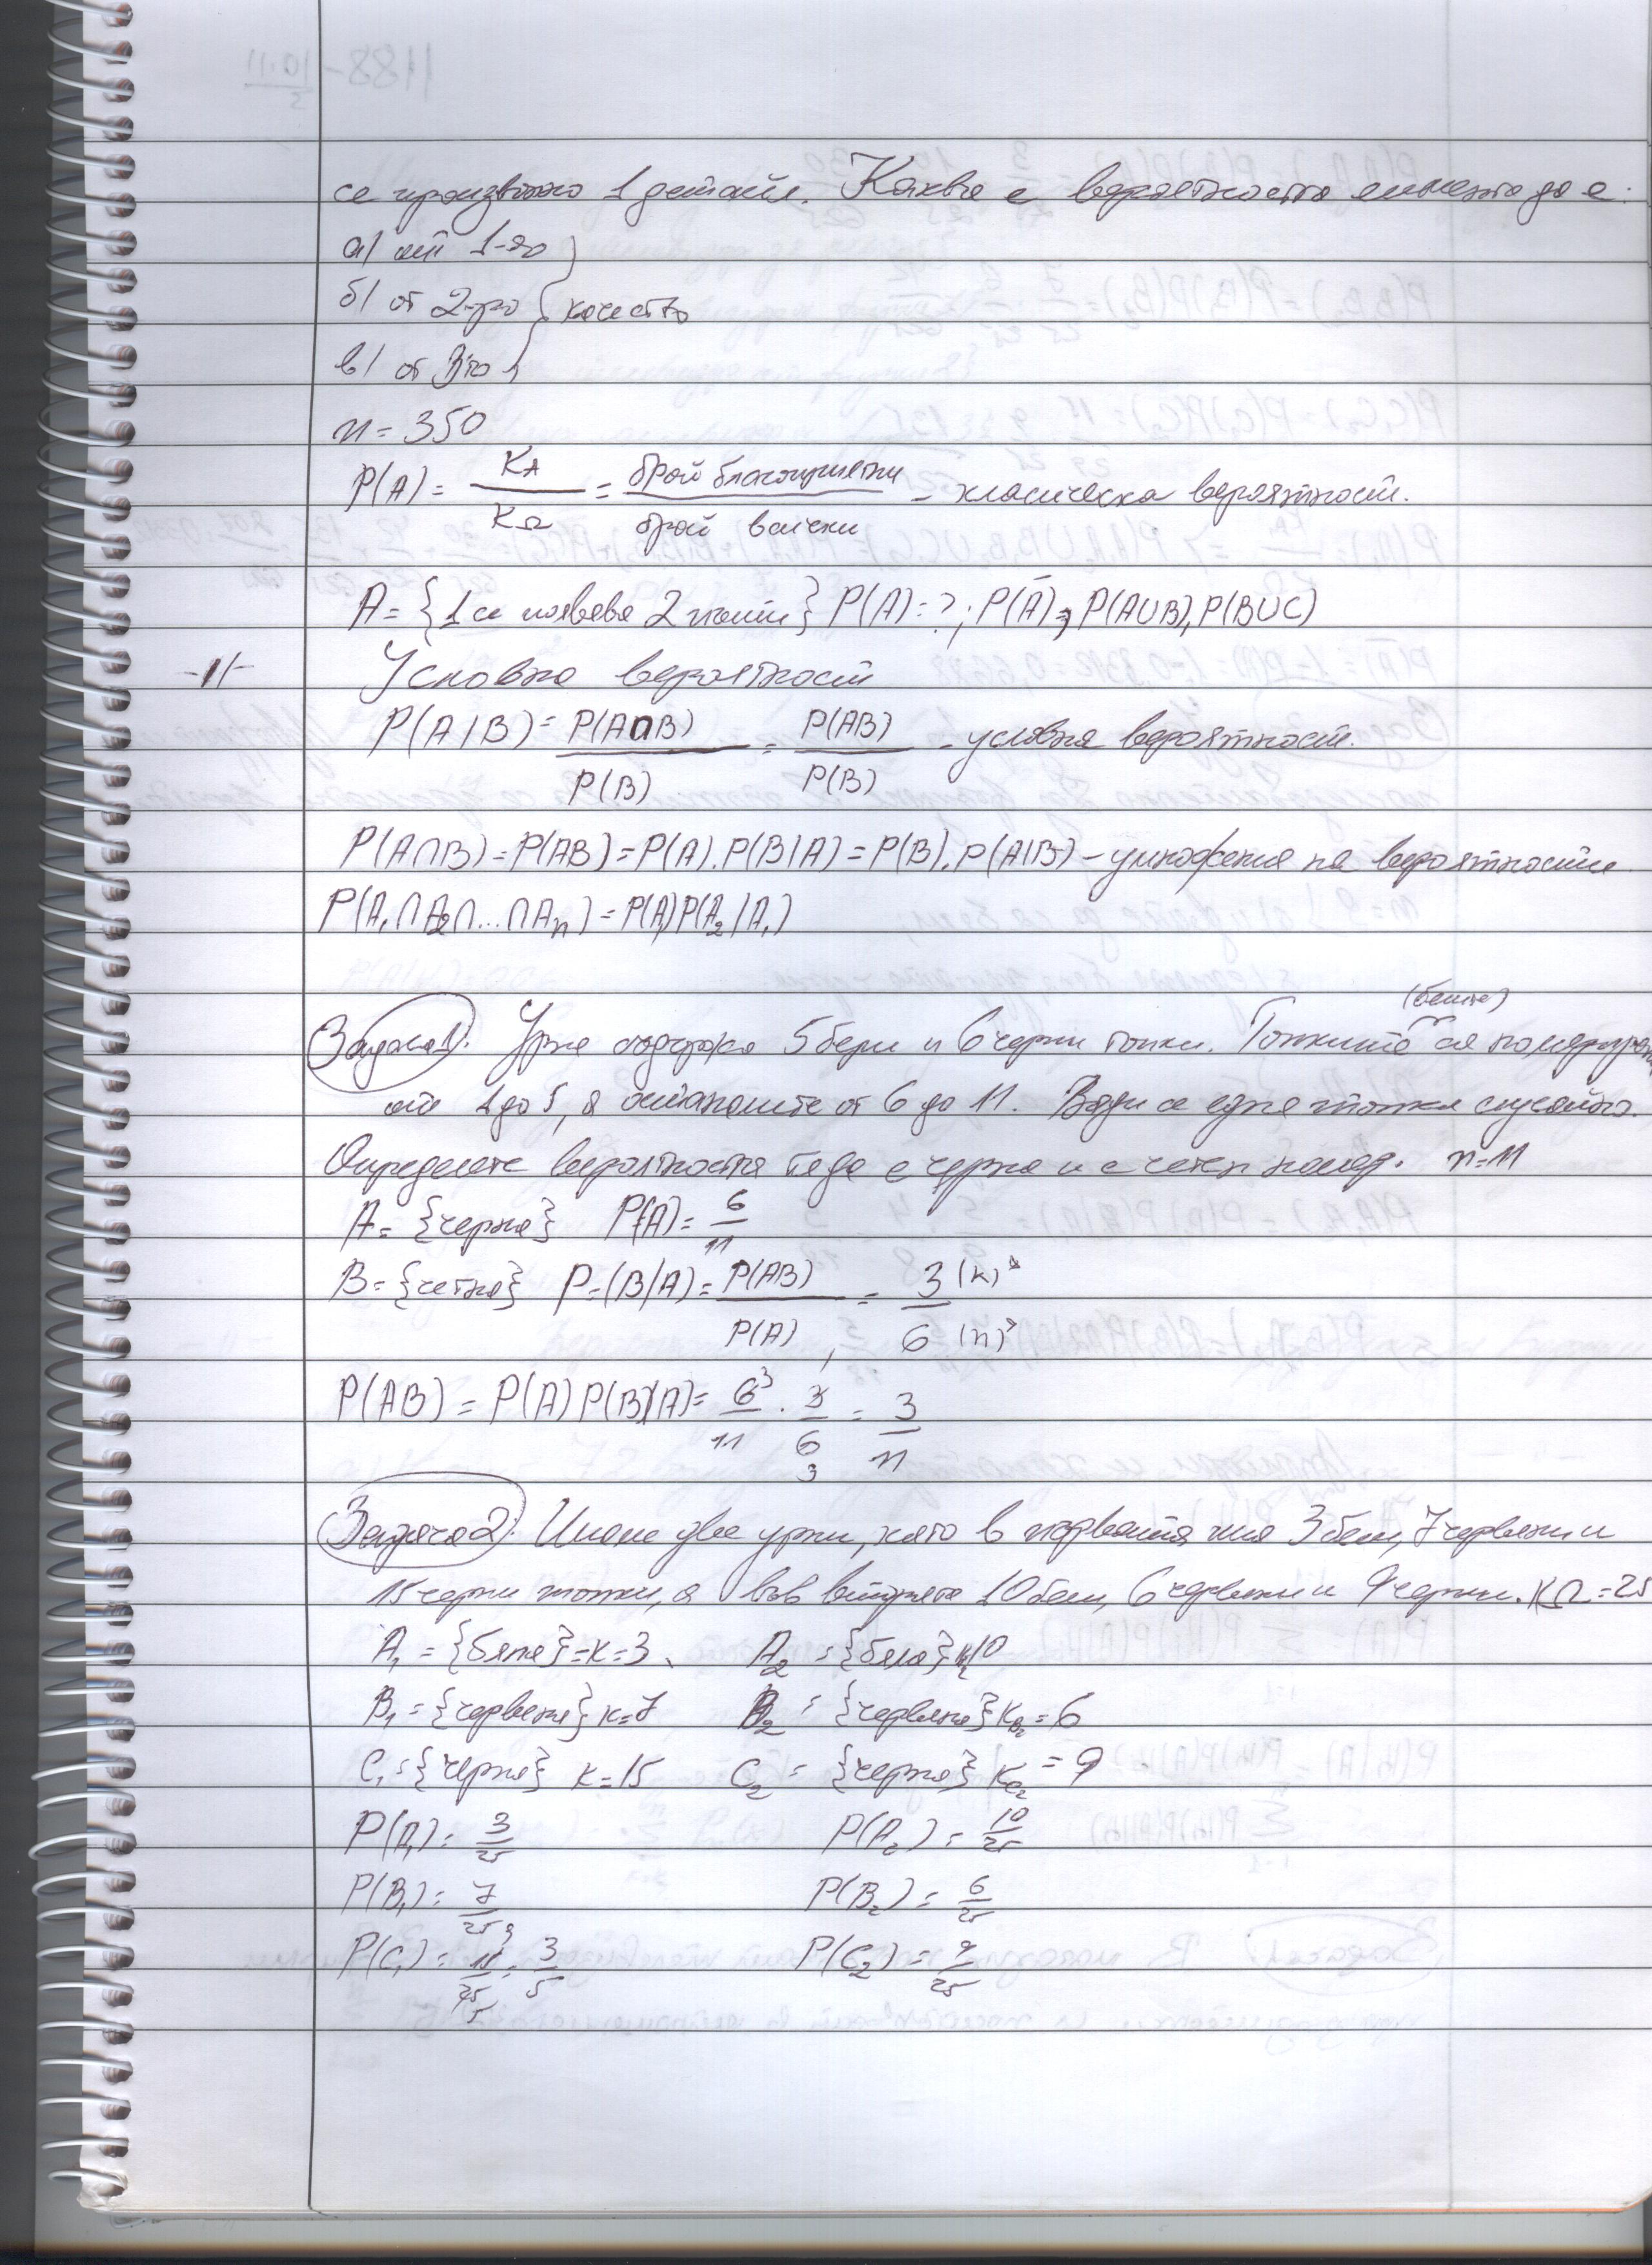 се произволно 1 детайл. Каква е вероятността същият да е:
а) от 1-во
б) от 2-ро } качество
в) от 3то
n = 350
P(A) = K_A / K_Ω = брой благоприятни / брой всички - класическа вероятност.
A = {1 се появява 2 пъти} P(A) = ?; P(Ā) = , P(A∪B), P(B∪C)
-11- Условна вероятност
P(A|B) = P(A∩B) / P(B) = P(AB) / P(B) - условна вероятност.
P(A∩B) = P(AB) = P(A).P(B|A) = P(B).P(A|B) - умножение на вероятности
P(A₁∩A₂∩...∩Aₙ) = P(A₁)P(A₂|A₁)
(белите)
Задача 1). Урна съдържа 5 бели и 6 черни топки. Топките са номерирани
от 1 до 5, а останалите от 6 до 11. Вади се една топка случайно.
Определете вероятността тя да е черна и с четен номер. n=11
A = {черна} P(A) = 6/11
B = {четна} P=(B/A) = P(AB) / P(A) = 3 (k) / 6 (n)
P(AB) = P(A)P(B|A) = 6/11 . 3/6 = 3/11
Задача 2). Имаме две урни, като в първата има 3 бели, 7 червени и
15 черни топки, а във втората 10 бели, 6 червени и 9 черни. KΩ = 25
A₁ = {бяла} = k = 3, A₂ = {бяла} k=10
B₁ = {червена} k=7 B₂ = {червена} K_B₂ = 6
C₁ = {черна} k=15 C₂ = {черна} K_C₂ = 9
P(A₁) = 3/25 P(A₂) = 10/25
P(B₁) = 7/25 P(B₂) = 6/25
P(C₁) = 15/25 = 3/5 P(C₂) = 9/25